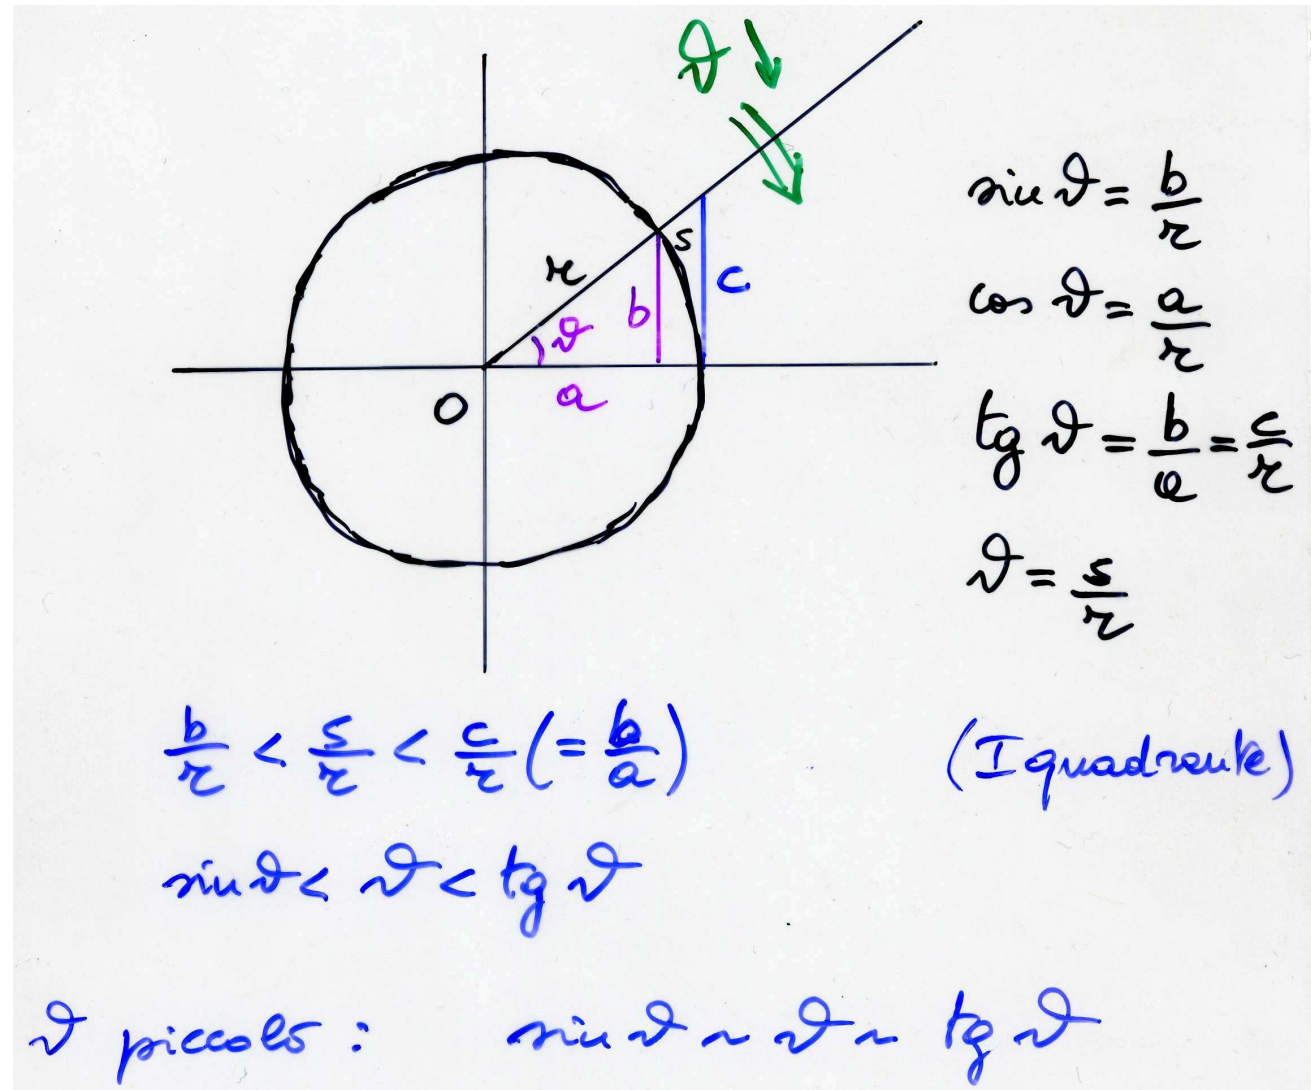 ϑ ↓
r
s
c
b
ϑ
a
O
sin ϑ = b/r
cos ϑ = a/r
tg ϑ = b/a = c/r
ϑ = s/r
b/r < s/r < c/r (= b/a) (I quadrante)
sin ϑ < ϑ < tg ϑ
ϑ piccolo : sin ϑ ~ ϑ ~ tg ϑ